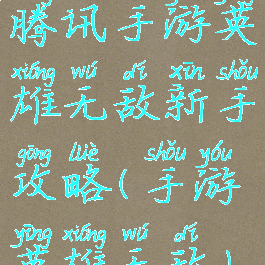 腾讯手游英
xióng wú dí xīn shǒu
雄无敌新手
gōng lüè shǒu yóu
攻略(手游
yīng xióng wú dí
英雄无敌)